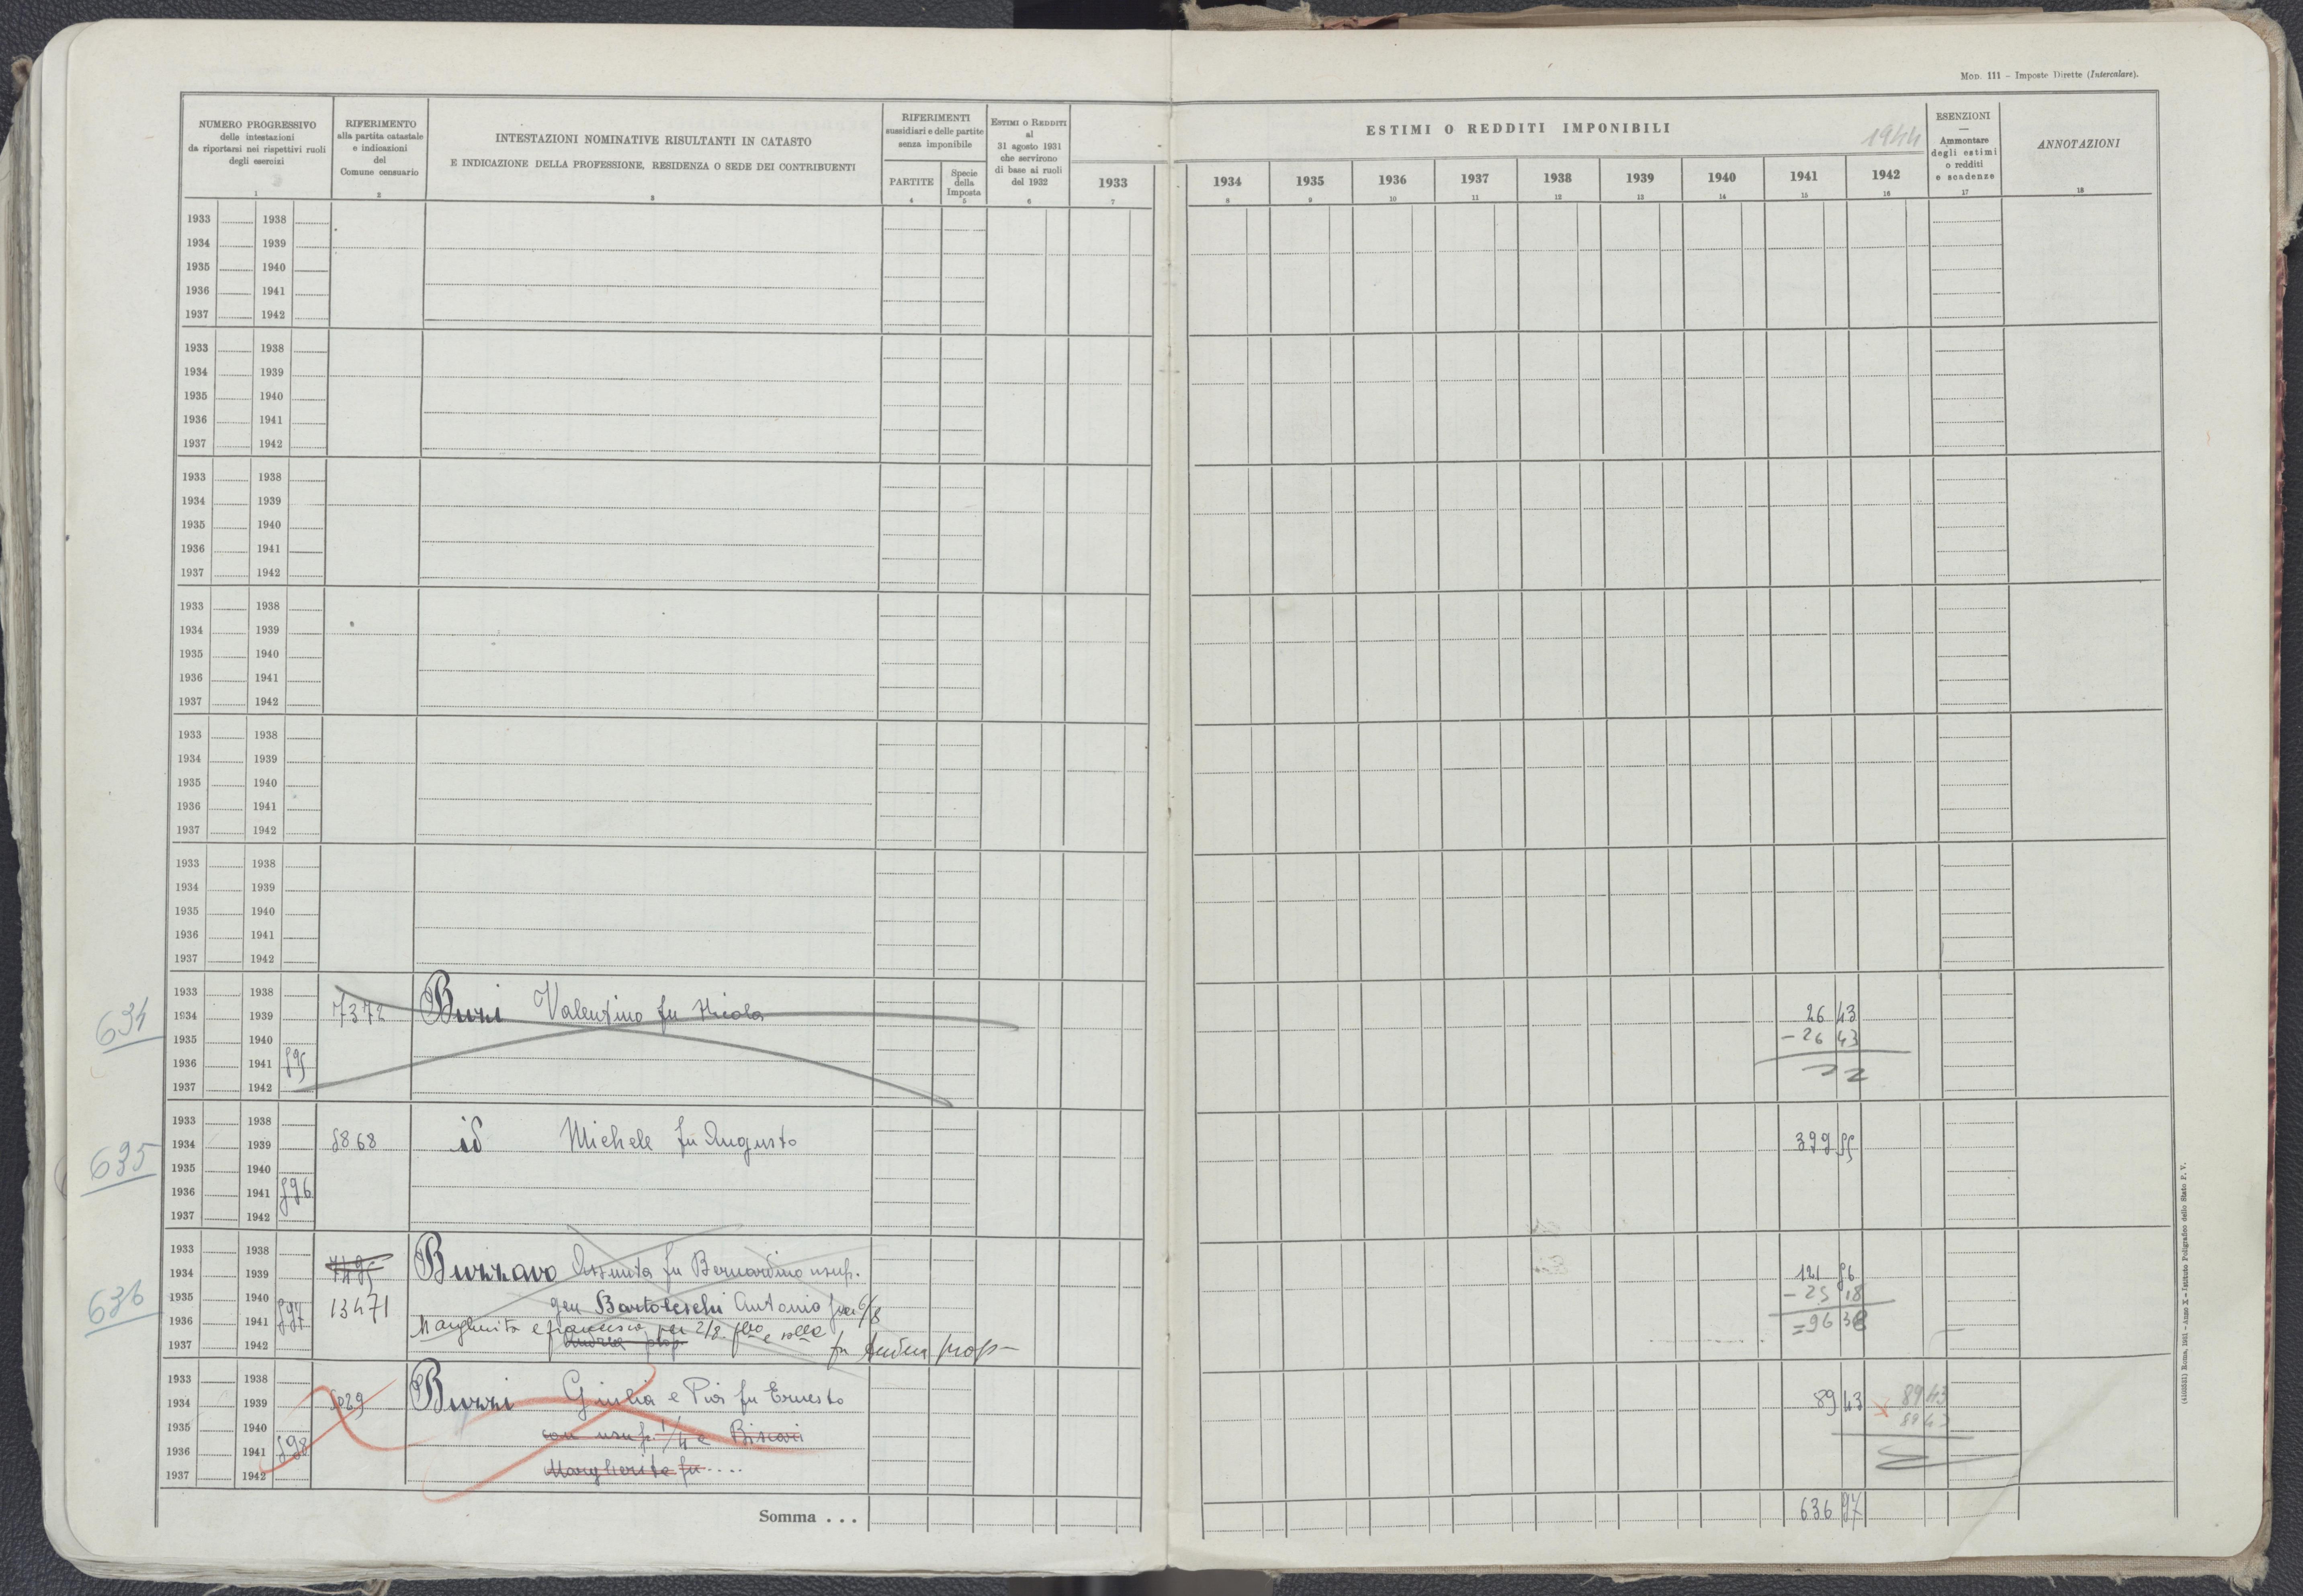 Mod. 111 – Imposte Dirette (Intercalare).
NUMERO PROGRESSIVO
delle intestazioni
da riportarsi nei rispettivi ruoli
degli esercizi
1
RIFERIMENTO
alla partita catastale
e indicazioni
del
Comune censuario
2
INTESTAZIONI NOMINATIVE RISULTANTI IN CATASTO
E INDICAZIONE DELLA PROFESSIONE, RESIDENZA O SEDE DEI CONTRIBUENTI
3
RIFERIMENTI
sussidiari e delle partite
senza imponibile
PARTITE
4
Specie
della
Imposta
5
Estimi o Redditi
al
31 agosto 1931
che servirono
di base ai ruoli
del 1932
6
ESTIMI O REDDITI IMPONIBILI
1944
1933 1934 1935 1936 1937 1938 1939 1940 1941 1942
7 8 9 10 11 12 13 14 15 16
ESENZIONI
—
Ammontare
degli estimi
o redditi
e scadenze
17
ANNOTAZIONI
18
1933 1938
1934 1939
1935 1940
1936 1941
1937 1942
1933 1938
1934 1939
1935 1940
1936 1941
1937 1942
1933 1938
1934 1939
1935 1940
1936 1941
1937 1942
1933 1938
1934 1939
1935 1940
1936 1941
1937 1942
1933 1938
1934 1939
1935 1940
1936 1941
1937 1942
1933 1938
1934 1939
1935 1940
1936 1941
1937 1942
634
1933 1938
1934 1939 7372 Buzzi Valentino fu Nicola 26 43
1935 1940 – 26 43
1936 1941 595
1937 1942
635
1933 1938
1934 1939 5868 id Michele fu Augusto 399 55
1935 1940
1936 1941 596
1937 1942
636
1933 1938
1934 1939 7495 Buzzavo Assunta fu Bernardino usuf. 121 56
1935 1940 13471 gen Bartoleschi Antonio per 6/8 – 25 18
1936 1941 597 Margherita e francesca per 2/8 = 96 38
1937 1942 Andrea prop. fu Andrea prop
1933 1938
1934 1939 5029 Buzzi Giulia e Pia fu Ernesto 89 43 89 43
1935 1940 con usuf. 1/4 a Biscari 89 43
1936 1941 598
1937 1942 Margherita fu ....
Somma . . . 636 97
(4103521) Roma, 1931 - Anno X - Istituto Poligrafico dello Stato P. V.